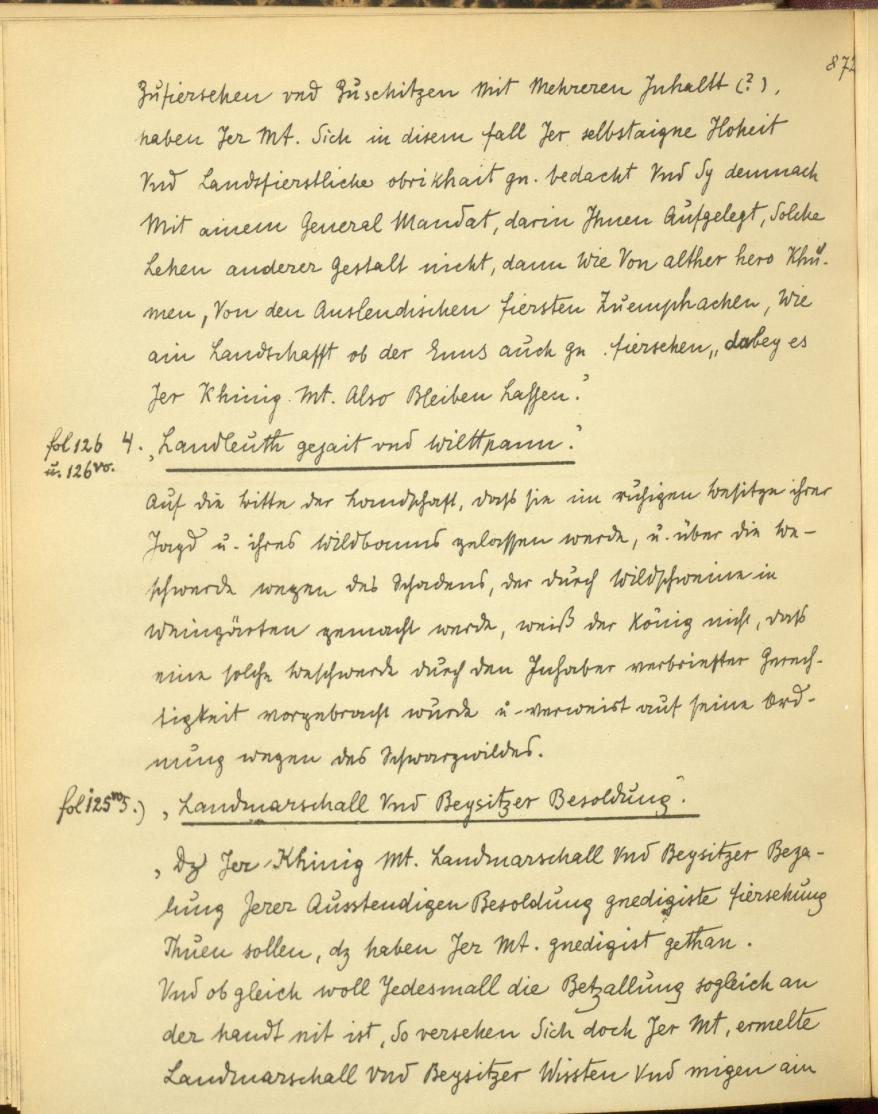 872
Zufiersehen vnd Zuschitzen Mit Mehreren Inhallt (?),
haben Jer Mt. Sich in disem fall Jer selbstaigne Hoheit
Vnd Landsfierstliche obrikhait gn. bedacht Vnd Sy demnach
Mit ainem General Mandat, darin Jhnen Aufgelegt, Solche
Lehen anderer Gestalt nicht, dann Wie Von alther hero Khu-
men, Von den Auslendischen fiersten Zuemphachen, Wie
ain Landschafft ob der Enns auch gn. fiersehen, dabey es
Jer Khinig. Mt. Also Bleiben Lassen."
fol 126 u. 126 vo. 4. „Landleuth gejait vnd wilttpann."
Auf die Bitte der Landschaft, daß sie im ruhigen Besitze ihrer
Jagd u. ihres Wildbanns gelassen werde, u. über die Be-
schwerde wegen des Schadens, der durch Wildschweine in
Weingärten gemacht werde, weiß der König nicht, daß
eine solche Beschwerde durch den Inhaber verbriefter Gerech-
tigkeit vorgebracht wurde u. verweist auf seine Ord-
nung wegen des Schwarzwildes.
fol 125 vo 5.) „Landmarschall Vnd Beysitzer Besoldung".
„Dz Jer Khinig Mt. Landmarschall Vnd Beysitzer Beza-
lung Jerer Ausstendigen Besoldung gnedigiste fiersehung
Thuen sollen, dz haben Jer Mt. gnedigist gethan.
Vnd ob gleich woll Jedesmall die Betzallung sogleich an
der handt nit ist, So versehen Sich doch Jer Mt, ermelte
Landmarschall vnd Beysitzer Wissten Vnd migen ain